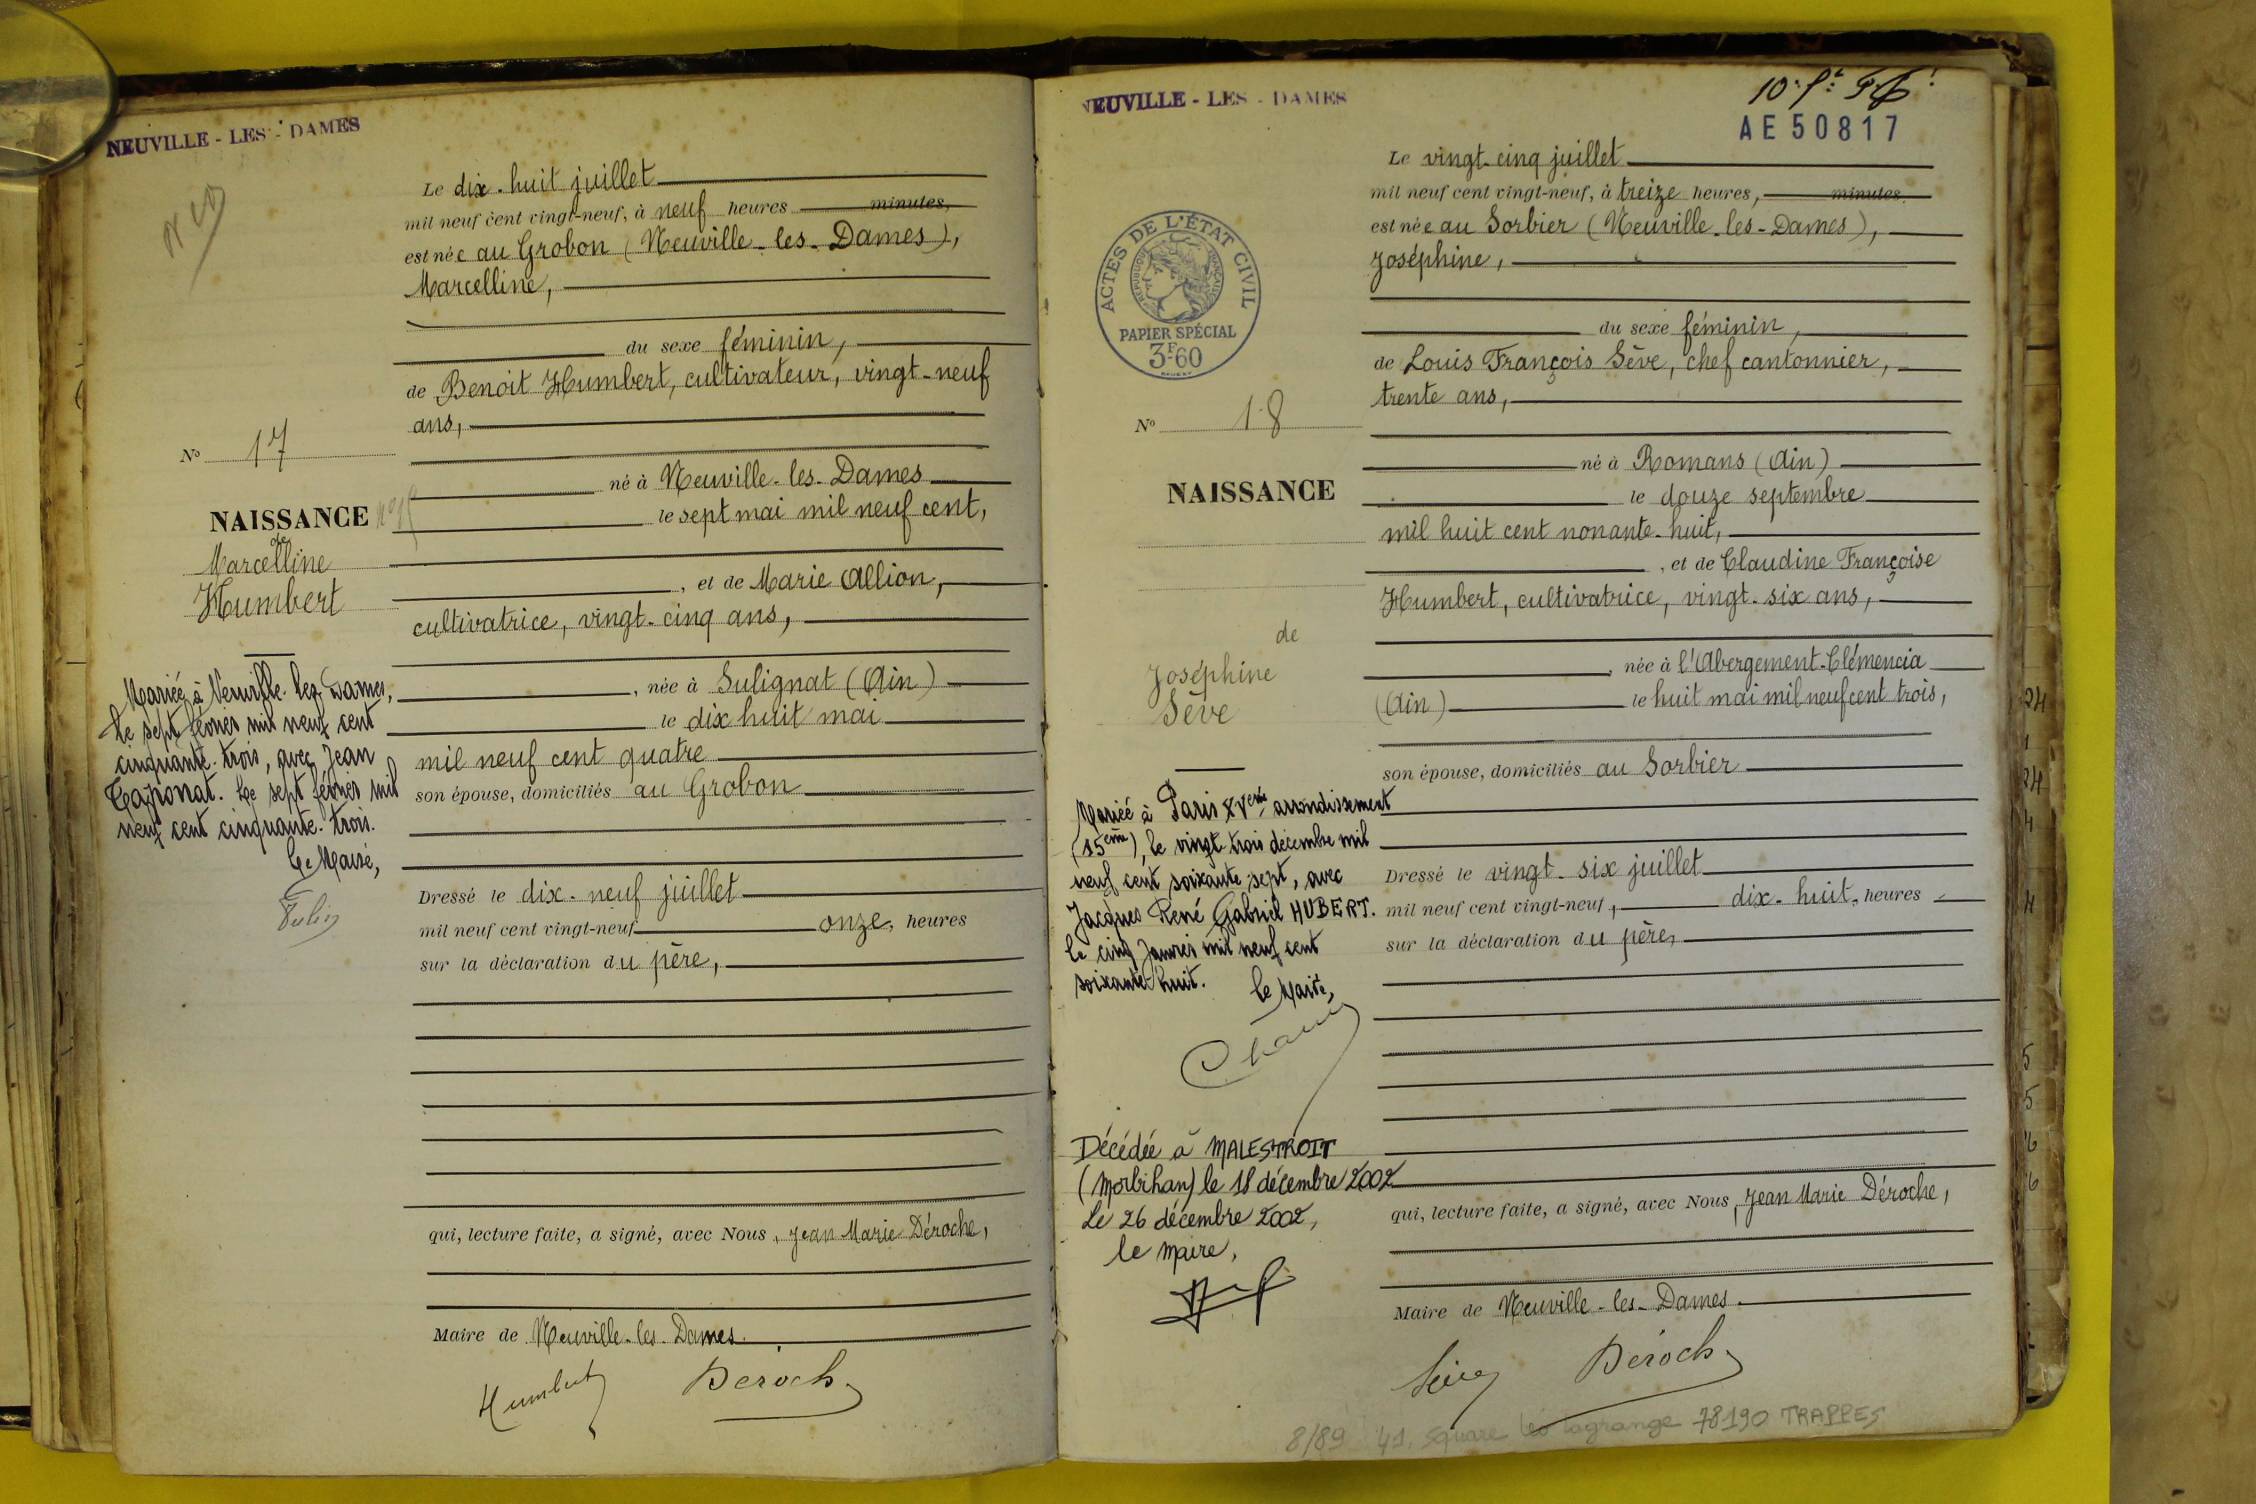 NEUVILLE - LES - DAMES
Le dix-huit juillet
mil neuf cent vingt-neuf, à neuf heures minutes,
est née au Grobon (Neuville-les-Dames),
Marcelline,
du sexe féminin,
de Benoit Humbert, cultivateur, vingt-neuf
ans,
né à Neuville-les-Dames
le sept mai mil neuf cent,
, et de Marie Allion,
cultivatrice, vingt-cinq ans,
, née à Sulignat (Ain)
le dix huit mai
mil neuf cent quatre
son épouse, domiciliés au Grobon
Dressé le dix-neuf juillet
mil neuf cent vingt-neuf onze, heures
sur la déclaration du père,
qui, lecture faite, a signé, avec Nous, Jean Marie Déroche,
Maire de Neuville-les-Dames.
Humbert Déroche
No 17
NAISSANCE
de
Marcelline
Humbert
Mariée à Neuville-les-Dames,
le sept février mil neuf cent
cinquante-trois, avec Jean
Taponat. Le sept février mil
neuf cent cinquante-trois.
Le Maire,
NEUVILLE - LES - DAMES
AE 50817
Le vingt-cinq juillet
mil neuf cent vingt-neuf, à treize heures, minutes
est née au Sorbier (Neuville-les-Dames),
Joséphine,
du sexe féminin,
de Louis François Sève, chef cantonnier,
trente ans,
né à Romans (Ain)
le douze septembre
mil huit cent nonante-huit,
, et de Claudine Françoise
Humbert, cultivatrice, vingt-six ans,
, née à l'Abergement-Clémencia
(Ain) le huit mai mil neuf cent trois,
son épouse, domiciliés au Sorbier
Dressé le vingt-six juillet
mil neuf cent vingt-neuf, dix-huit, heures
sur la déclaration du père,
qui, lecture faite, a signé, avec Nous, Jean Marie Déroche,
Maire de Neuville-les-Dames.
Sève Déroche
8/89 41, square léo lagrange 78190 TRAPPES
ACTES DE L'ÉTAT CIVIL
RÉPUBLIQUE FRANÇAISE
PAPIER SPÉCIAL
3F.60
No 18
NAISSANCE
de
Joséphine
Sève
Mariée à Paris XVème arrondissement
(15ème), le vingt-trois décembre mil
neuf cent soixante sept, avec
Jacques René Gabriel HUBERT.
le cinq Janvier mil neuf cent
soixante-huit.
le Maire,
Décédée à MALESTROIT
(Morbihan) le 18 décembre 2002
Le 26 décembre 2002,
le Maire,
24
1
24
4
4
5
5
6
6